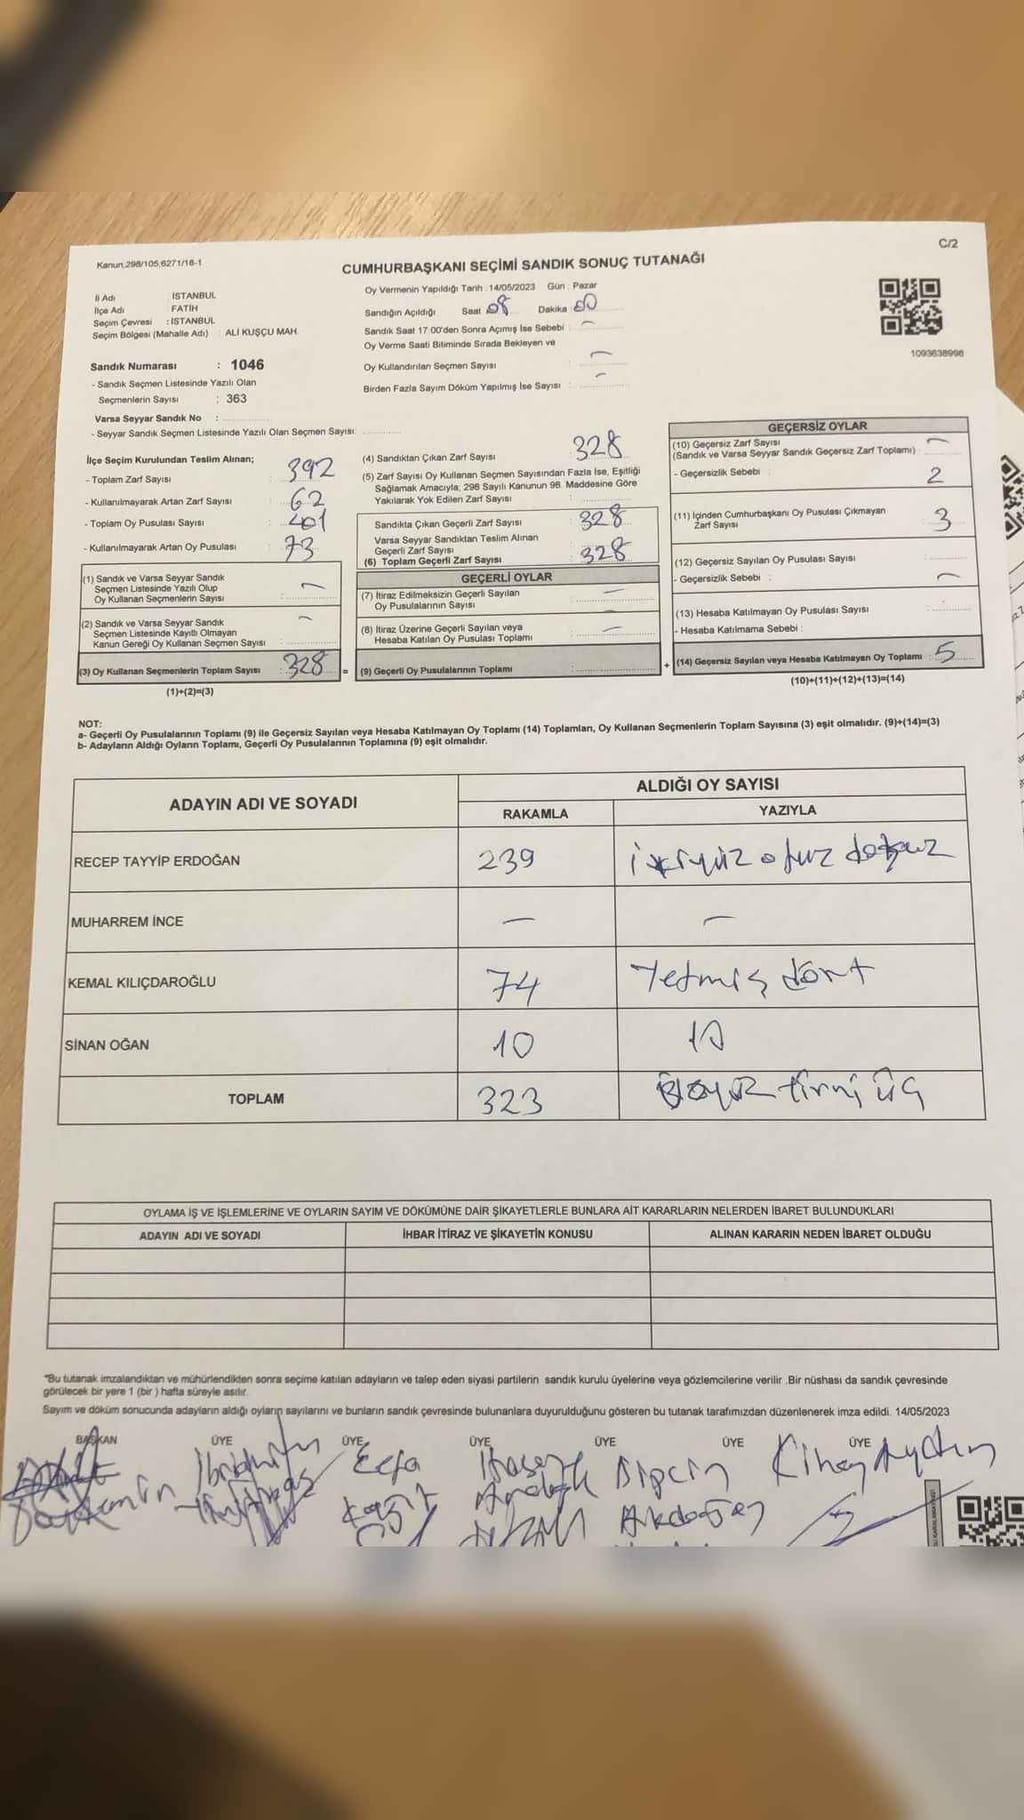 C/2
Kanun,298/105,6271/16-1
CUMHURBAŞKANI SEÇİMİ SANDIK SONUÇ TUTANAĞI
İl Adı : İSTANBUL
İlçe Adı FATİH
Seçim Çevresi : İSTANBUL
Seçim Bölgesi (Mahalle Adı) : ALİ KUŞÇU MAH.
Oy Vermenin Yapıldığı Tarih :14/05/2023 Gün : Pazar
Sandığın Açıldığı Saat 08 Dakika 00
Sandık Saat 17:00'den Sonra Açımış İse Sebebi : —
Oy Verme Saati Bitiminde Sırada Bekleyen ve
Oy Kullandırılan Seçmen Sayısı : —
Birden Fazla Sayım Döküm Yapılmış İse Sayısı : —
1093638998
Sandık Numarası : 1046
- Sandık Seçmen Listesinde Yazılı Olan
Seçmenlerin Sayısı : 363
Varsa Seyyar Sandık No :
- Seyyar Sandık Seçmen Listesinde Yazılı Olan Seçmen Sayısı:
İlçe Seçim Kurulundan Teslim Alınan;
- Toplam Zarf Sayısı : 392
- Kullanılmayarak Artan Zarf Sayısı : 62
- Toplam Oy Pusulası Sayısı : 401
- Kullanılmayarak Artan Oy Pusulası : 73
(1) Sandık ve Varsa Seyyar Sandık
Seçmen Listesinde Yazılı Olup
Oy Kullanan Seçmenlerin Sayısı : —
(2) Sandık ve Varsa Seyyar Sandık
Seçmen Listesinde Kayıtlı Olmayan
Kanun Gereği Oy Kullanan Seçmen Sayısı : —
(3) Oy Kullanan Seçmenlerin Toplam Sayısı : 328 =
(1)+(2)=(3)
(4) Sandıktan Çıkan Zarf Sayısı : 328
(5) Zarf Sayısı Oy Kullanan Seçmen Sayısından Fazla İse, Eşitliği
Sağlamak Amacıyla; 298 Sayılı Kanunun 98. Maddesine Göre
Yakılarak Yok Edilen Zarf Sayısı :
Sandıkta Çıkan Geçerli Zarf Sayısı : 328
Varsa Seyyar Sandıktan Teslim Alınan
Geçerli Zarf Sayısı
(6) Toplam Geçerli Zarf Sayısı : 328
GEÇERLİ OYLAR
(7) İtiraz Edilmeksizin Geçerli Sayılan
Oy Pusulalarının Sayısı : —
(8) İtiraz Üzerine Geçerli Sayılan veya
Hesaba Katılan Oy Pusulası Toplamı : —
(9) Geçerli Oy Pusulalarının Toplamı : +
GEÇERSİZ OYLAR
(10) Geçersiz Zarf Sayısı
(Sandık ve Varsa Seyyar Sandık Geçersiz Zarf Toplamı) : —
- Geçersizlik Sebebi : 2
(11) İçinden Cumhurbaşkanı Oy Pusulası Çıkmayan
Zarf Sayısı 3
(12) Geçersiz Sayılan Oy Pusulası Sayısı :
- Geçersizlik Sebebi : —
(13) Hesaba Katılmayan Oy Pusulası Sayısı :
- Hesaba Katılmama Sebebi :
(14) Geçersiz Sayılan veya Hesaba Katılmayan Oy Toplamı : 5
(10)+(11)+(12)+(13)=(14)
NOT:
a- Geçerli Oy Pusulalarının Toplamı (9) ile Geçersiz Sayılan veya Hesaba Katılmayan Oy Toplamı (14) Toplamları, Oy Kullanan Seçmenlerin Toplam Sayısına (3) eşit olmalıdır. (9)+(14)=(3)
b- Adayların Aldığı Oyların Toplamı, Geçerli Oy Pusulalarının Toplamına (9) eşit olmalıdır.
ADAYIN ADI VE SOYADI ALDIĞI OY SAYISI
RAKAMLA YAZIYLA
RECEP TAYYİP ERDOĞAN 239 ikiyüz otuz dokuz
MUHARREM İNCE — —
KEMAL KILIÇDAROĞLU 74 Yetmiş dört
SİNAN OĞAN 10 10
TOPLAM 323 üçyüz yirmi üç
OYLAMA İŞ VE İŞLEMLERİNE VE OYLARIN SAYIM VE DÖKÜMÜNE DAİR ŞİKAYETLERLE BUNLARA AİT KARARLARIN NELERDEN İBARET BULUNDUKLARI
ADAYIN ADI VE SOYADI İHBAR İTİRAZ VE ŞİKAYETİN KONUSU ALINAN KARARIN NEDEN İBARET OLDUĞU
"Bu tutanak imzalandıktan ve mühürlendikten sonra seçime katılan adayların ve talep eden siyasi partilerin sandık kurulu üyelerine veya gözlemcilerine verilir .Bir nüshası da sandık çevresinde
görülecek bir yere 1 (bir ) hafta süreyle asılır.
Sayım ve döküm sonucunda adayların aldığı oyların sayılarını ve bunların sandık çevresinde bulunanlara duyurulduğunu gösteren bu tutanak tarafımızdan düzenlenerek imza edildi. 14/05/2023
BAŞKAN ÜYE ÜYE ÜYE ÜYE ÜYE ÜYE